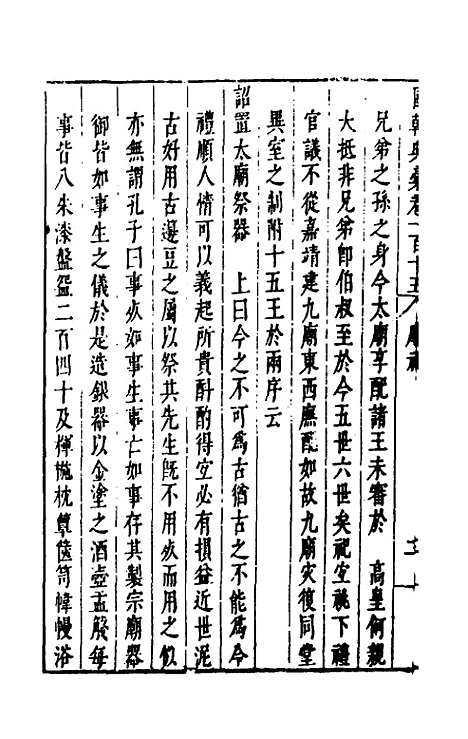 國朝典彙卷一百十五 廟祀
兄弟之孫之身今太廟享配諸王未審於 高皇何親
大抵非兄弟卽伯叔至於今五世六世矣祀宜祧下禮
官議不從嘉靖建九廟東西廡配如故九廟灾復同堂
異室之制附十五王於兩序云
詔置太廟祭器 上曰今之不可為古猶古之不能為今
禮順人情可以義起所貴酌酌得宜必有損益近世泥
古好用古邊豆之屬以祭其先生旣不用歿而用之似
亦無謂孔子曰事死如事生事亡如事存其製宗廟器
御皆如事生之儀於是造銀器以金塗之酒壺盂盞每
事皆八朱漆盤盌二百四十及楎椸枕簟篋笥幃幔浴